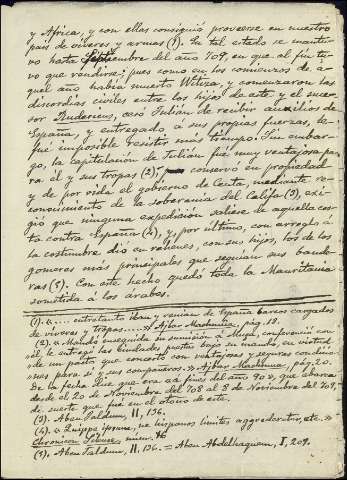 y Africa, y con ellas consiguió proveerse en nuestro
país de víveres y armas (1). En tal estado se mantu-
vo hasta Septiembre del año 709, en que al fin tu-
vo que rendirse; pues como en los comienzos de a-
quel año había muerto Witiza, y comenzaron las
discordias civiles entre los hijos de este y el suce-
sor Rudericus, cesó Julian de recibir auxilios de
España, y entregado á sus propias fuerzas, le
fué imposible resistir más tiempo. Sin embar-
go, la capitulacion de Julian fué muy ventajosa pa-
ra él y sus tropas (2); conservó en propiedad
y de por vida el gobierno de Ceuta, mediante re-
conocimiento de la soberanía del Califa (3), exi-
gió que ninguna expedicion saliese de aquella cos-
ta contra España (4), y, por último, con arreglo á
la costumbre dió en rehenes, con sus hijos, los de los
gomeres más principales que seguian sus bande-
ras (5). Con este hecho quedó toda la Mauritania
sometida á los árabes.
(1). «.... entretanto iban y venian de España barcos cargados
de víveres y tropas....» Ajbar Machmûa, pág. 18.
(2). « Mandó enseguida su sumisión á Muça, conferenció con
él, le entregó las ciudades puestas bajo su mando, en virtud
de un pacto que concertó con ventajosas y seguras condicio-
nes para sí y sus compañeros.» Ajbar Machmûa, pág. 20.
De la fecha dice que era á fines del año 90, que abarca
desde el 20 de Noviembre del 708 al 8 de Noviembre del 709,
de suerte que fué en el otoño de este.
(3). Aben Jaldum, II, 136.
(4). « Quippe ipsum, ne hispanos limites aggrederetur, etc. »
Chronicon Silense num. 16
(5). Aben Jaldum, II, 136. = Aben Abdelhaquem, I, 209.